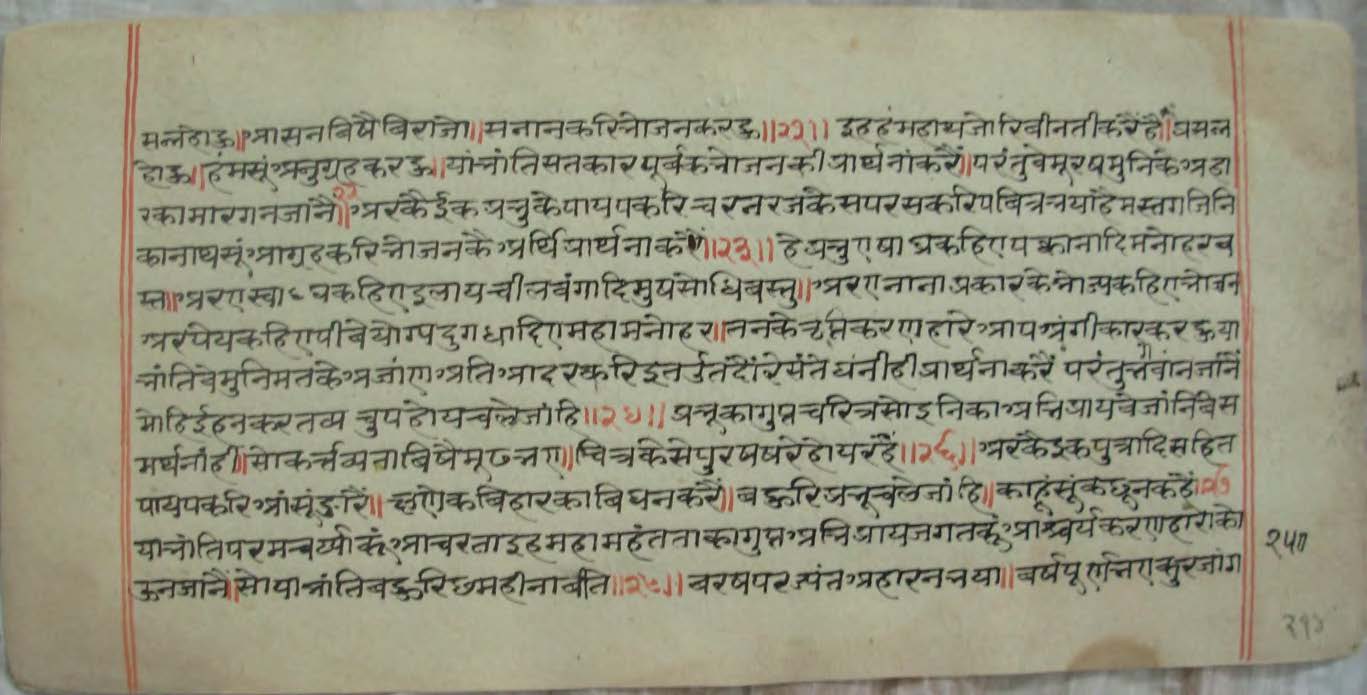 मन्नहोऊ॥आसनबिषैबिराजो॥सनानकरिभोजनकरऊ॥२२॥ इहहंमहाथजोरिबीनतीकरैंहैं॥प्रसन्न
होऊ॥हंमसूंअनुग्रहकरऊ॥याभांतिसतकारपूर्वकभोजनकीप्रार्थनांकरैं॥परंतुवेमूरषमुनिकेअहा
रकामारगनजांनैं॥२३ अरकैईकप्रभुकेपायपकरिचरनरजकेसपरसकरिपवित्रभयाहैमस्तगजिनि
कानाथसूंआग्रहकरिभोजनकैअर्थिप्रार्थनाकरैं॥२३॥ हेप्रभुएषाद्यकहिएपक्वानादिमनोहरव
स्त॥अरएस्वाद्यकहिएइलायचीलवंगादिमुषसोधिवस्तु॥अरएनानाप्रकारकेभोज्यकहिएभोजन
अरपेयकहिएपीवेयोग्यदुगधादिएमहामनोहर॥तनकेतृप्तिकरणहारेआपअंगीकारकरऊया
भांतिवेमुनिमतकेअजांणअतिआदरकरिइनउंतंदौरेसंतेघंनीहीप्रार्थनाकरैं परंतुभैवांनजांनैं
मोहिईहनकरतव्य चुपहोयचलेजांहि॥२५॥ प्रभूकागुप्तचरित्रसोइनिकाअभिप्रायवेजांनिबेस
मर्थनांही॥सोकर्त्तव्यताबिषैमूढभए॥चित्रकेसेपुरषषरेहोयरहैं॥२६॥ अरकैइकपुत्रादिसहित
पायपकरिआंसूंडारैं॥छणेकबिहारकाबिघनकरैं॥बऊरिप्रभूचलेजांहि॥काहूंसूंकछूनकहैं॥२७
याभांतिपरमचर्य्याकूंआचरताइहमहामहंतताकागुप्तअभिप्रायजगतकूंआश्चर्यकरणहाराको
ऊनजांनैं॥सोयाभांतिबऊरिछमहीनाबीते॥२८॥ बरषपरज्यंतअहारनभया॥बर्षपूर्णभएकुरजांग
२५॥